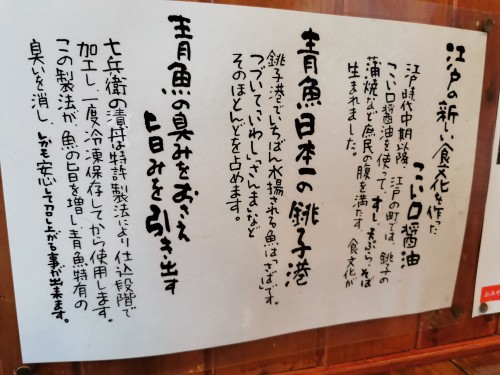 江戸の新しい食文化を作った
こい口醤油
江戸時代中期以降、江戸の町では、銚子の
こい口醤油を使って、すし、天ぷら、そば
蒲焼など庶民の腹を満たす、食文化が
生まれました。
青魚日本一の銚子港
銚子港でいちばん水揚される魚は「さば」です。
つづいて「いわし」「さんま」など
そのほとんどを占めます。
青魚の臭みをおさえ
旨みを引き出す
七兵衛の漬丼は特許製法により仕込段階で
加工し、一度冷凍保存してから使用します。
この製法が、魚の旨を増し青魚特有の
臭いを消し、しかも安心して召し上がる事が出来ます。